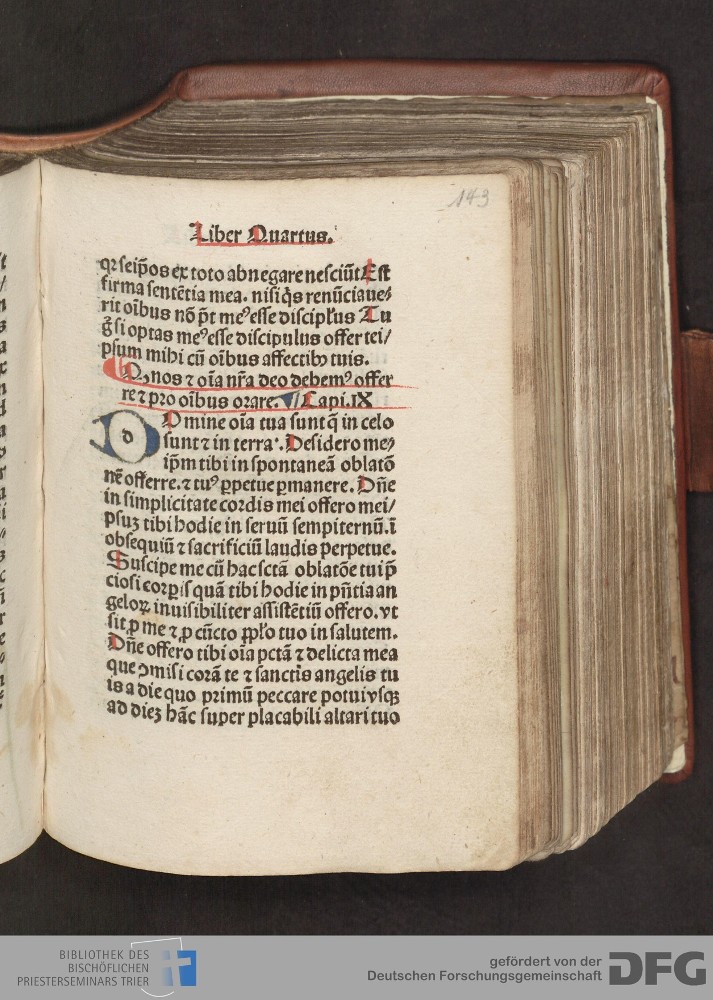 143
Liber Quartus.
qꝛ seip̄os ex toto abnegare nesciūt Est
firma sentētia mea. nisi q̇s renūciaue⸗
rit oībus nō p̄t meꝰ esse discipl̓us Tu
g̊ si optas meꝰ esse discipulus offer tei/
psum mihi cū oībus affectibꝰ tuis.
Qꝫ nos ⁊ oīa nr̄a deo debemꝰ offer
re ⁊ pro oībus orare. Capi. IX
d Omine oīa tua sunt q̄ in celo
sunt ⁊ in terra. Desidero me⸗
ip̄m tibi in spontaneā oblatō
nē offerre. ⁊ tuꝰ ꝑpetue ꝑmanere. Dn̄e
in simplicitate cordis mei offero mei/
psuꝫ tibi hodie in seruū sempiternū. ī
obsequiū ⁊ sacrificiū laudis perpetue.
Suscipe me cū hac sctā oblatōe tui p̄
ciosi corꝑis quā tibi hodie in pn̄tia an
geloꝝ inuisibiliter assistētiū offero. vt
sit ꝓ me ⁊ ꝓ cūcto pp̄lo tuo in salutem.
Dn̄e offero tibi oīa pctā ⁊ delicta mea
que ꝯmisi corā te ⁊ sanctis angelis tu
is a die quo primū peccare potui vsqꝫ
ad dieꝫ hāc super placabili altari tuo
BIBLIOTHEK DES
BISCHÖFLICHEN
PRIESTERSEMINARS TRIER
gefördert von der
Deutschen Forschungsgemeinschaft
DFG